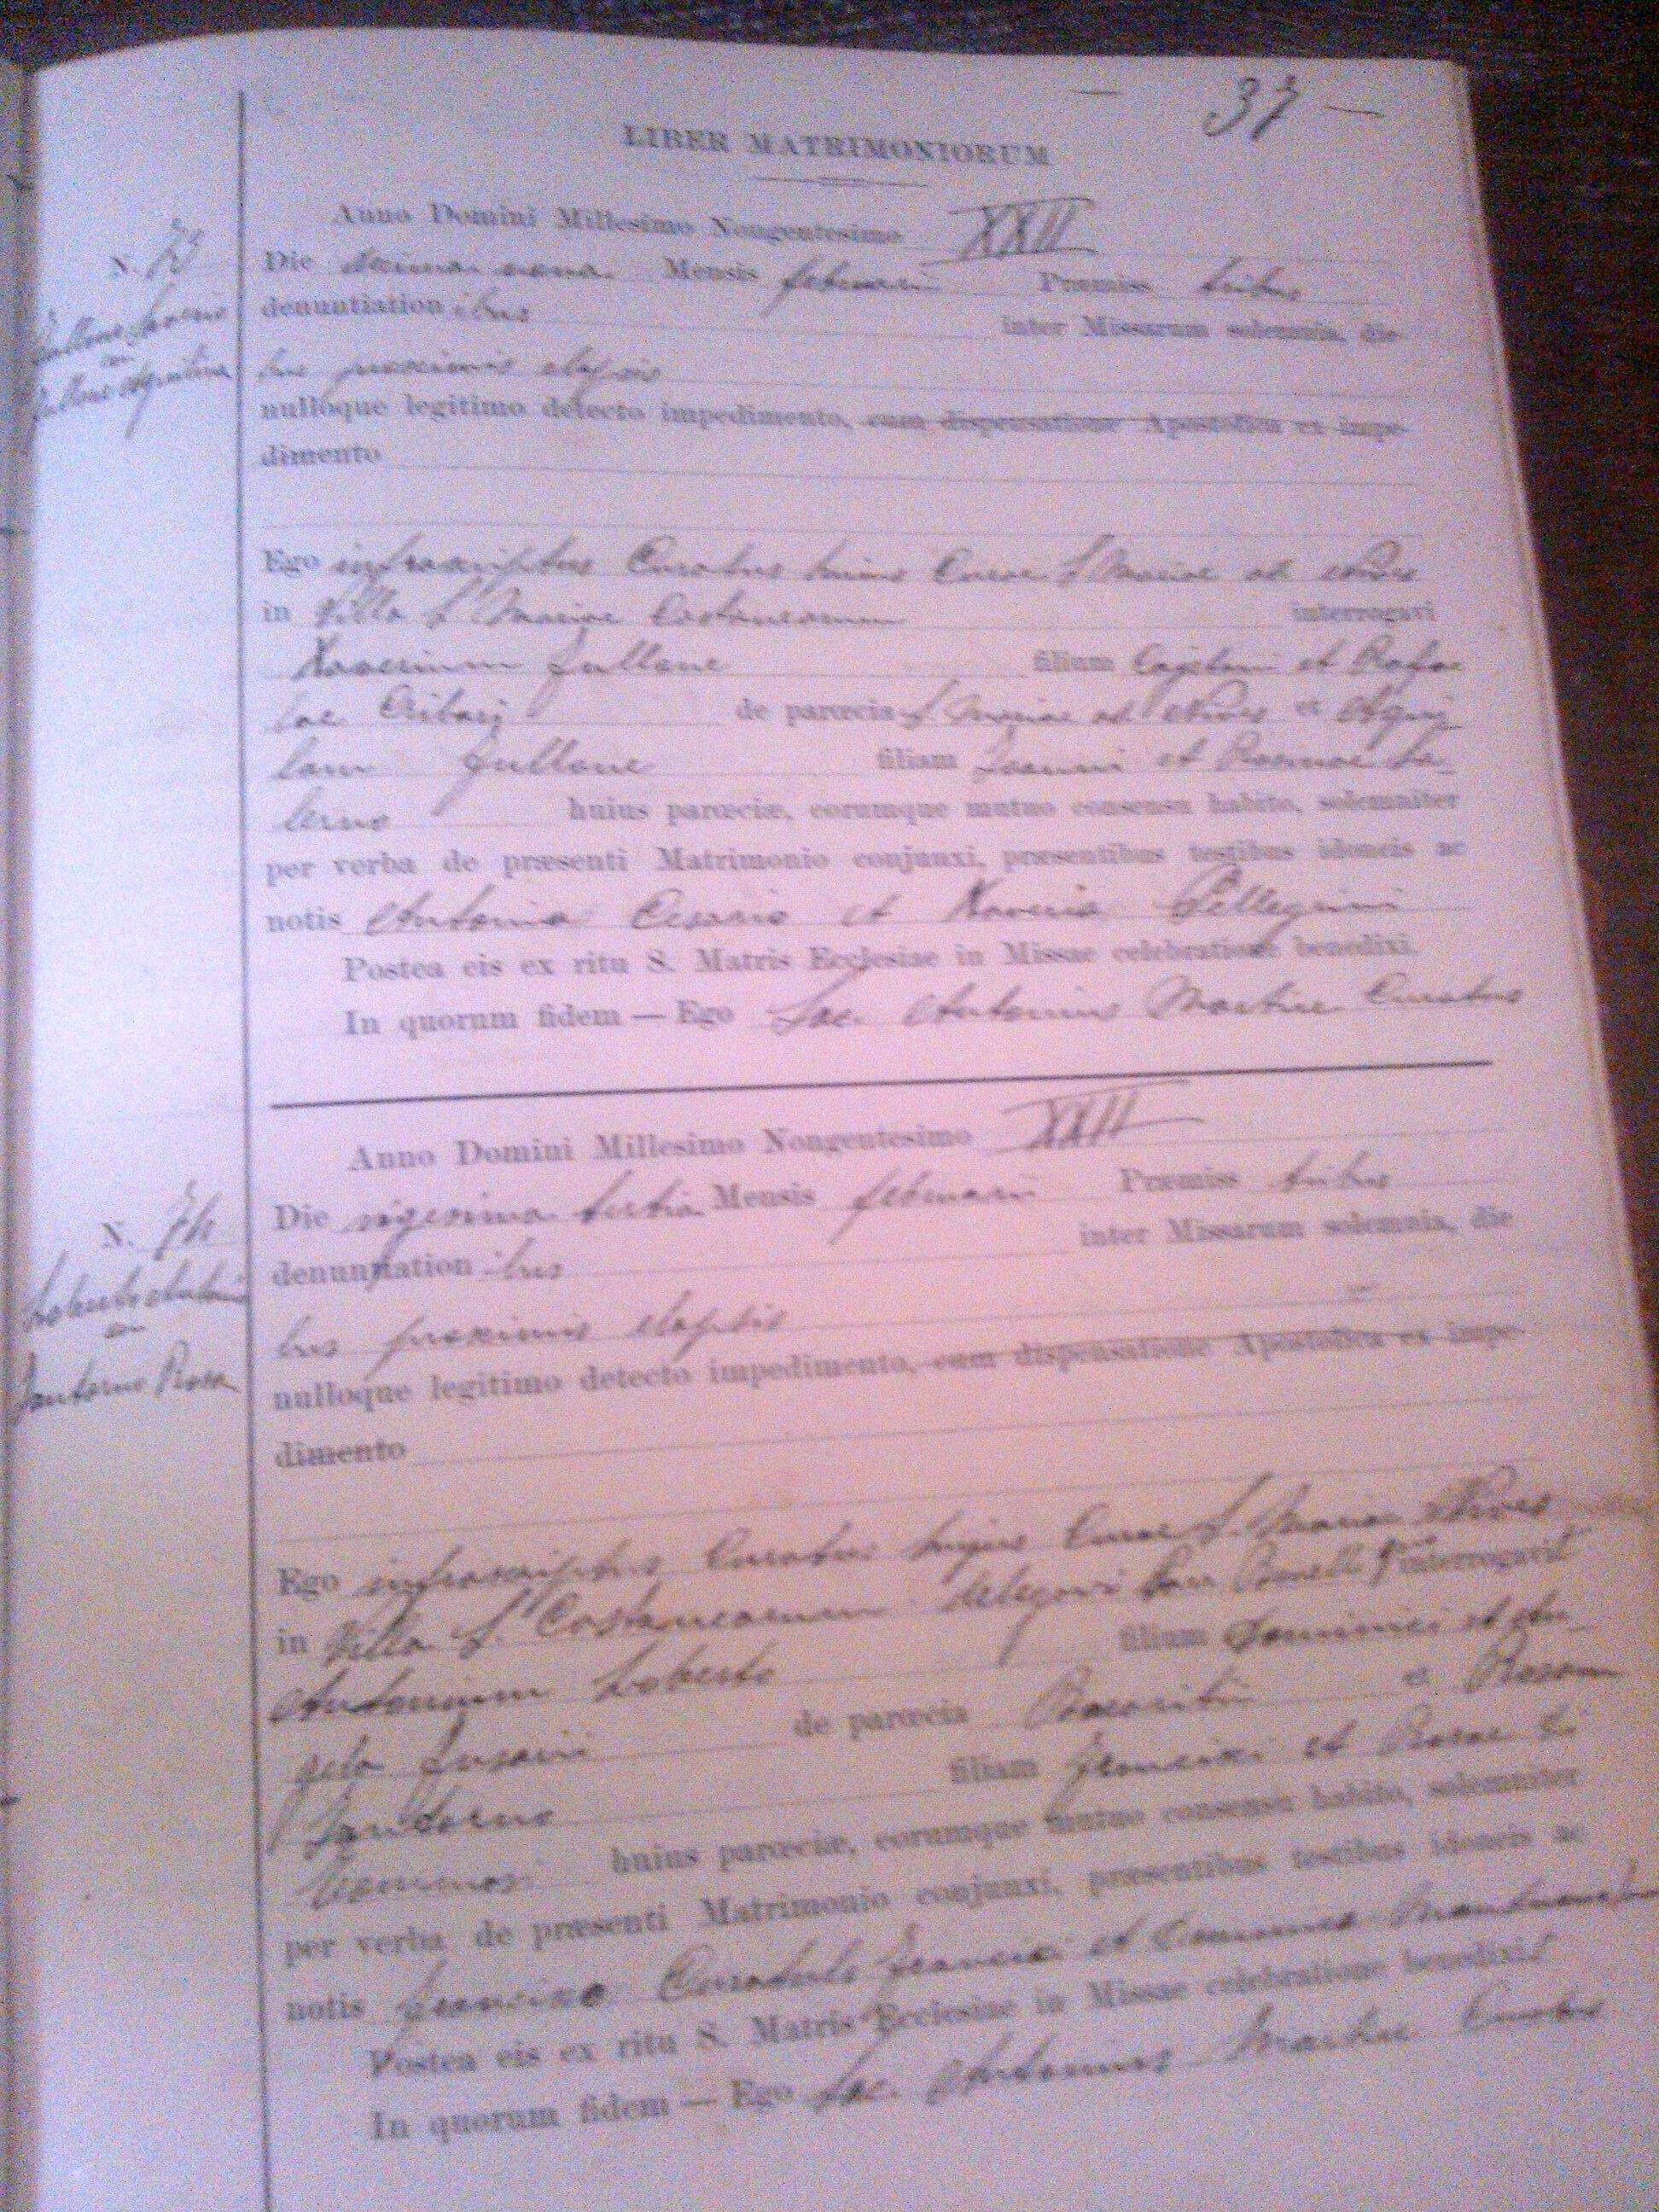 37
LIBER MATRIMONIORUM
Anno Domini Millesimo Nongentesimo XXII
N. 73 Die decima nona Mensis februarii Præmiss tribus
denuntiation ibus inter Missarum solemnia, die
bus proximis elapsis
nulloque legitimo detecto impedimento, cum dispensatione Apostolica ex impe-
dimento
Ego infrascriptus Curatus huius Curae S. Mariae ad Nives
in Villa S. Mariae Castanearum interrogavi
Xaverium Fullone filium Cajetani et Rafae
lae de parœcia S. Mariae ad Nives et Aqui
lam Fullone filiam Joanni et Rosinae Sa-
lerno huius parœciæ, eorumque mutuo consensu habito, solemniter
per verba de præsenti Matrimonio conjunxi, præsentibus testibus idoneis ac
notis Antonio Cesario et Xaverio Pellegrini
Postea eis ex ritu S. Matris Ecclesiae in Missae celebratione benedixi.
In quorum fidem — Ego Sac. Antonius Martire Curatus
Anno Domini Millesimo Nongentesimo XXII
N. 74 Die vigesima tertia Mensis februarii Præmiss tribus
denuntiation ibus inter Missarum solemnia, die
bus proximis elapsis
nulloque legitimo detecto impedimento, cum dispensatione Apostolica ex impe-
dimento
Ego infrascriptus Curatus hujus Curae S. Mariae Nives
in Villa S. Castanearum delegavi qui interrogavit
Antonium filium Dominici et An-
gela de parœcia et Rosam
Santorno filiam Francisci et Rosae
huius parœciæ, eorumque mutuo consensu habito, solemniter
per verba de præsenti Matrimonio conjunxi, præsentibus testibus idoneis ac
notis Francisco Francisci et
Postea eis ex ritu S. Matris Ecclesiae in Missae celebratione benedixit
In quorum fidem — Ego Sac. Antonius Martire Curatus